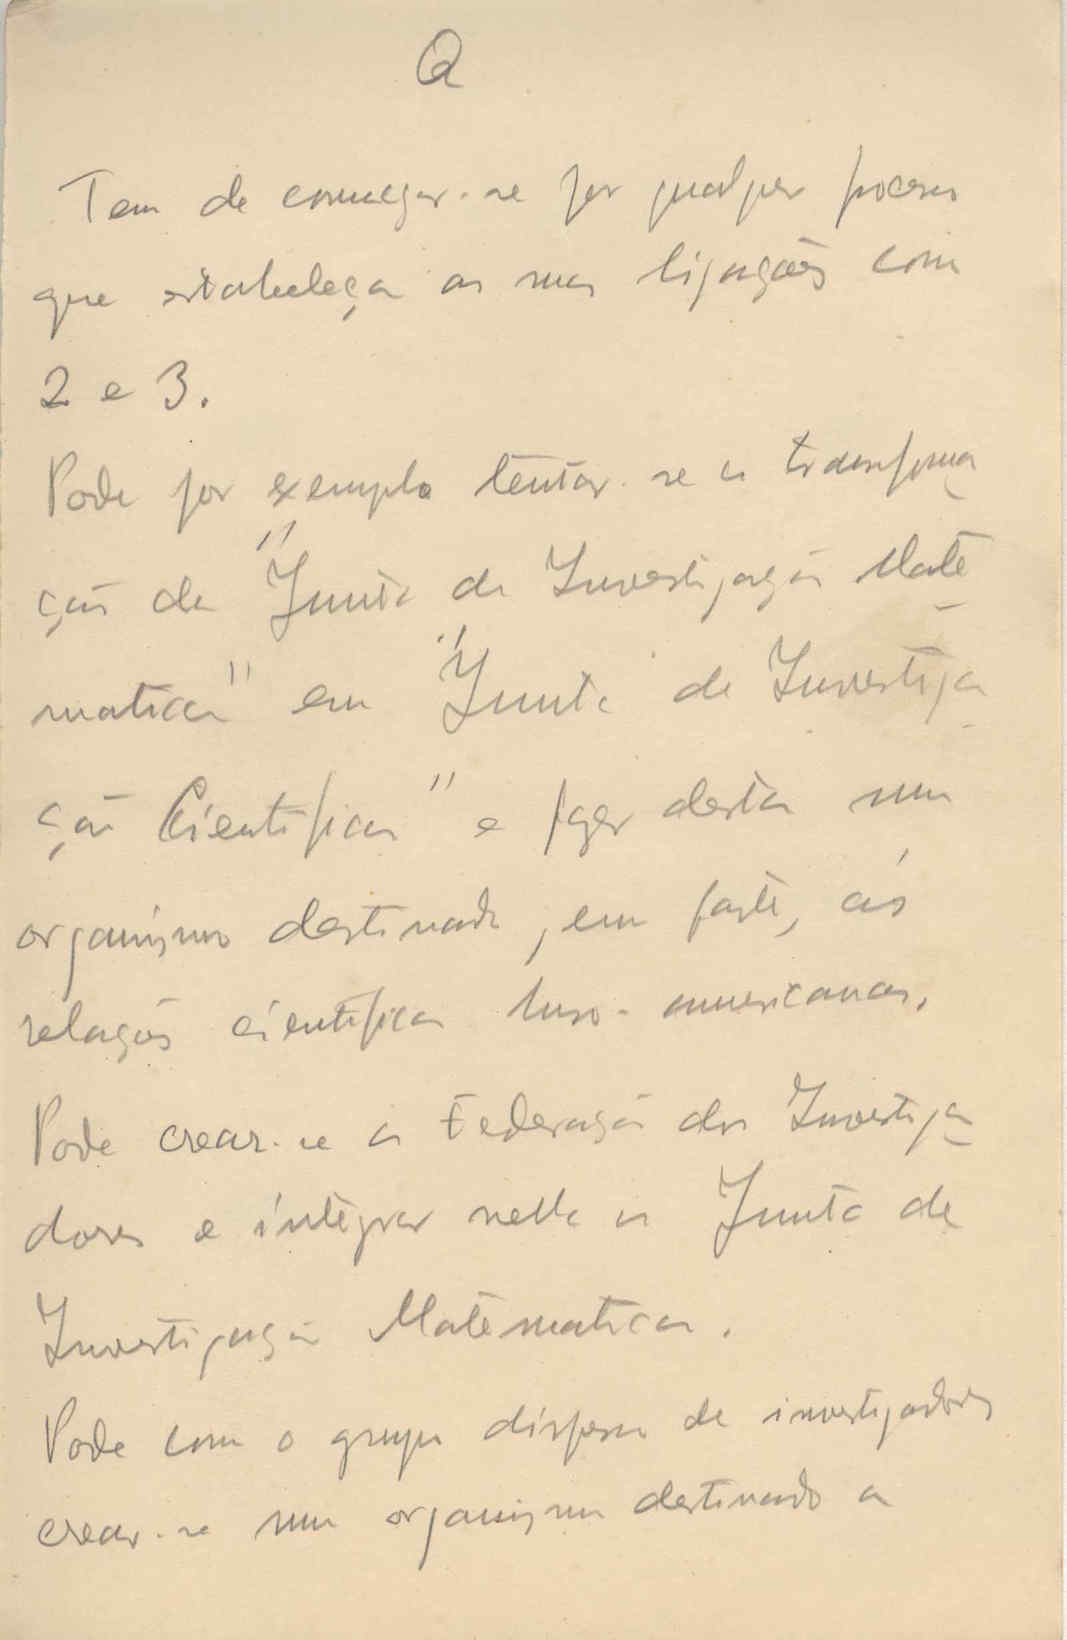 Q
Tem de começar-se por qualquer processo
que estabeleça as suas ligações com
2 e 3.
Pode por exemplo tentar-se a transforma
ção da "Junta de Investigação Mate
matica" em "Junta de Investiga
ção Cientifica" e fazer desta um
organismo destinado, em parte, ás
relações cientificas luso-americanas.
Pode crear-se a Federação dos Investiga
dores e integrar nella a Junta de
Investigação Matematica.
Pode com o grupo disperso de investigadores
crear-se um organismo destinado a